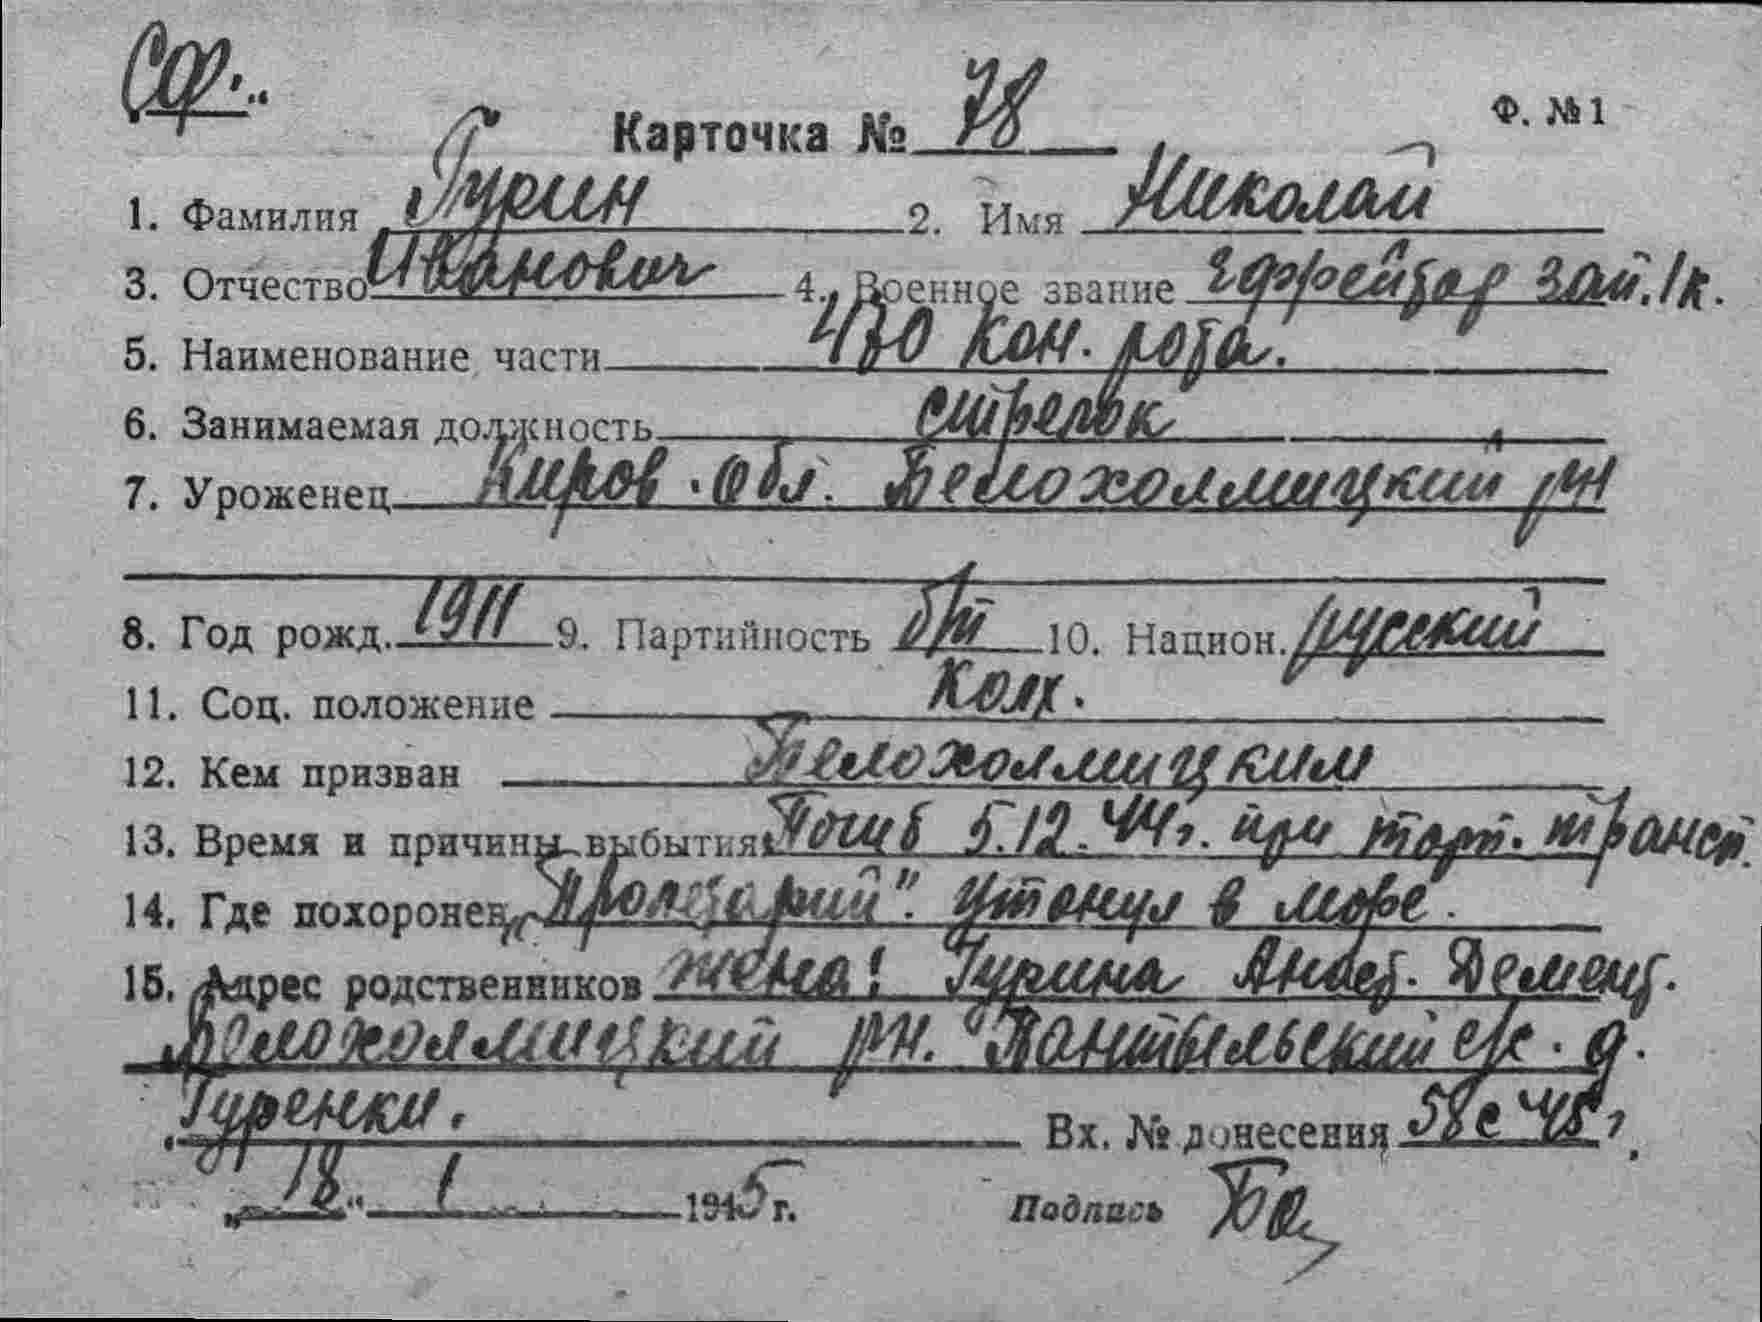 Сф.
Карточка № 78 Ф. №1
1. Фамилия Гурин 2. Имя Николай
3. Отчество Иванович 4. Военное звание Ефрейтор зап. 1к.
5. Наименование части кон. рота.
6. Занимаемая должность стрелок
7. Уроженец Киров. обл. Белохолмицкий рн
8. Год рожд. 1911 9. Партийность б/п 10. Национ. русский
11. Соц. положение Колх.
12. Кем призван Белохолмицким
13. Время и причины выбытия Погиб 5.12.44г. при торп. трансп.
14. Где похоронен „Пролетарий". Утонул в море.
15. Адрес родственников жена: Гурина Анаст. Демент.
Белохолмицкий рн. Пантыльский с/с. д.
Гуренки. Вх. № донесения 58с 45г.
„18" 1 1945 г. Подпись